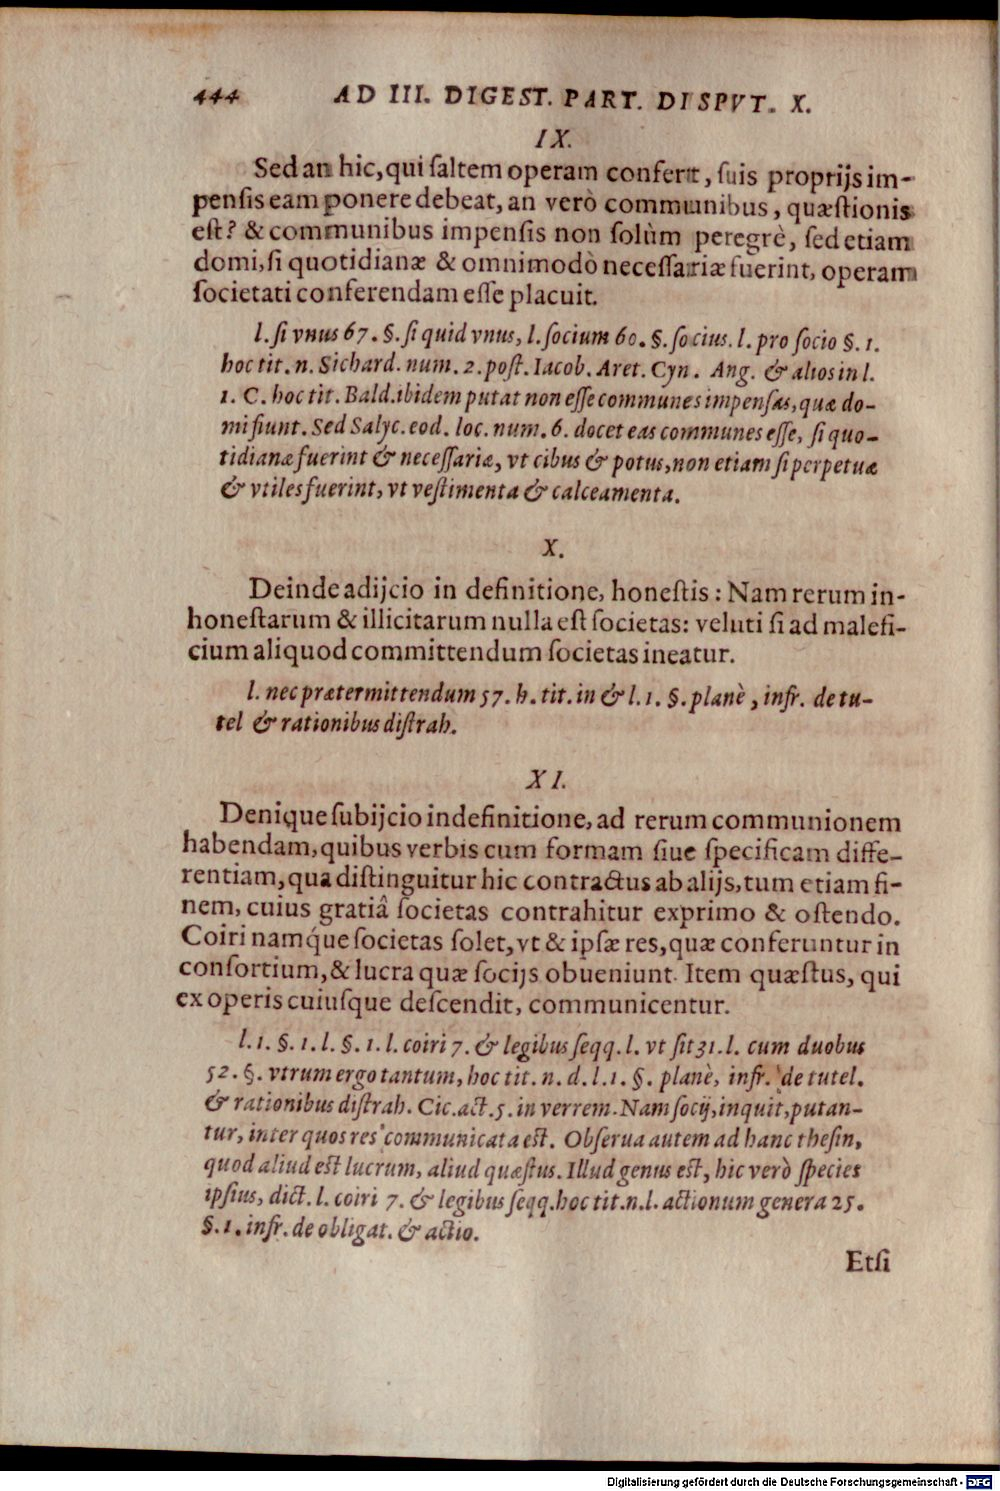 444 AD III. DIGEST. PART. DISPVT. X.
IX.
Sed an hic, qui ſaltem operam confert, ſuis proprijs im-
penſis eam ponere debeat, an verò communibus, quæſtionis
eſt? & communibus impenſis non ſolùm peregrè, ſed etiam
domi, ſi quotidianæ & omnimodò neceſſariæ fuerint, operam
ſocietati conferendam eſſe placuit.
l. ſi vnus 67. §. ſi quid vnus, l. ſocium 60. §. ſocius. l. pro ſocio §. 1.
hoc tit. n. Sichard. num. 2. poſt. Iacob. Aret. Cyn. Ang. & alios in l.
1. C. hoc tit. Bald. ibidem putat non eſſe communes impenſas, quæ do-
mi fiunt. Sed Salyc. eod. loc. num. 6. docet eas communes eſſe, ſi quo-
tidianæ fuerint & neceſſariæ, vt cibus & potus, non etiam ſi perpetuæ
& vtiles fuerint, vt veſtimenta & calceamenta.
X.
Deinde adijcio in definitione, honeſtis: Nam rerum in-
honeſtarum & illicitarum nulla eſt ſocietas: veluti ſi ad malefi-
cium aliquod committendum ſocietas ineatur.
l. nec prætermittendum 57. h. tit. in & l. 1. §. planè, infr. de tu-
tel & rationibus diſtrah.
XI.
Denique ſubijcio in definitione, ad rerum communionem
habendam, quibus verbis cum formam ſiue ſpecificam diffe-
rentiam, qua diſtinguitur hic contractus ab alijs, tum etiam fi-
nem, cuius gratiâ ſocietas contrahitur exprimo & oſtendo.
Coiri namq́ue ſocietas ſolet, vt & ipſæ res, quæ conferuntur in
conſortium, & lucra quæ ſocijs obueniunt. Item quæſtus, qui
ex operis cuiuſque deſcendit, communicentur.
l. 1. §. 1. l. §. 1. l. coiri 7. & legibus ſeqq. l. vt ſit 31. l. cum duobus
52. §. vtrum ergo tantum, hoc tit. n. d. l. 1. §. planè, infr. de tutel.
& rationibus diſtrah. Cic. act. 5. in verrem. Nam ſocij, inquit, putan-
tur, inter quos res communicata eſt. Obſerua autem ad hanc theſin,
quod aliud eſt lucrum, aliud quæſtus. Illud genus eſt, hic verò ſpecies
ipſius, dict. l. coiri 7. & legibus ſeqq. hoc tit. n. l. actionum genera 25.
§. 1. infr. de obligat. & actio.
Etſi
Digitalisierung gefördert durch die Deutsche Forschungsgemeinschaft - DFG